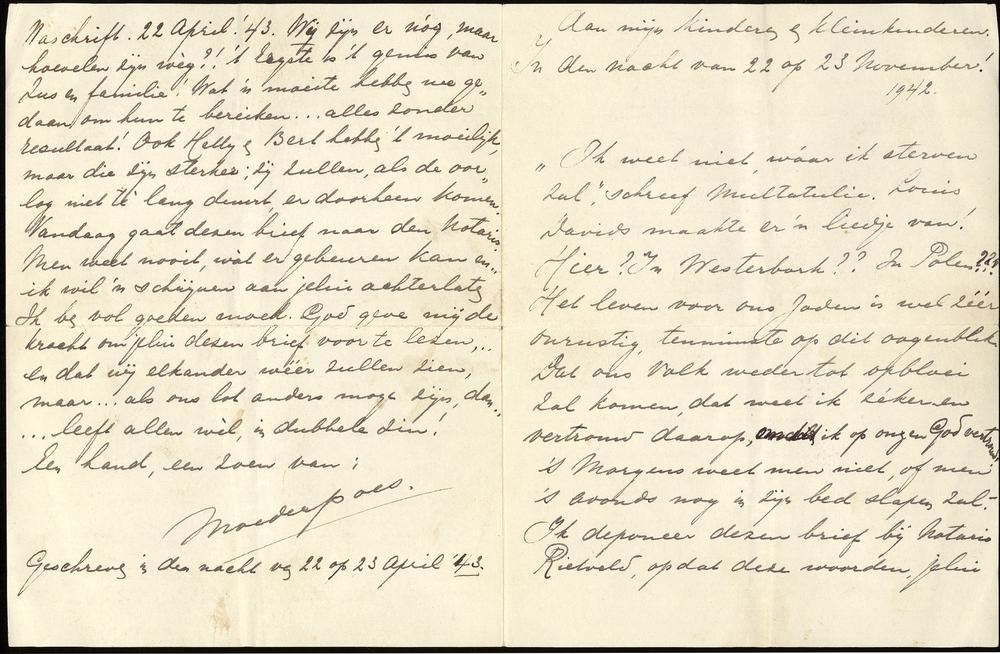 Naschrift. 22 April! '43. Wij zijn er nóg, maar
hoevelen zijn wèg?! 't Ergste is 't gemis van
Zus en familie! Wat 'n moeite hebben we ge„
daan, om hun te bereiken... alles zonder
resultaat! Ook Hetty en Bert hebben 't moeilijk,
maar die zijn sterker; zij zullen, als de oor„
log niet té lang duurt, er doorheen komen.
Vandaag gaat dezen brief naar den Notaris.
Men weet nooit, wat er gebeuren kan en..
ik wil 'n schrijven aan jelui achterlaten
Ik ben vol goeden moed. God geve mij de
kracht om jelui dezen brief voor te lezen,..
en dat wij elkander wéér zullen zien,
maar... als ons lot anders moge zijn, dan..
... leeft allen wel, in dubbele zin!
Een hand, een zoen van:
Moederpoes.
Geschreven in den nacht van 22 op 23 April '43.
Aan mijn kinderen en kleinkinderen.
In den nacht van 22 op 23 November!
1942.
„Ik weet niet, wáar ik sterven
zal", schreef Multatulie. Louis
Davids maakte er 'n liedje van!
Hier? In Westerbork?? In Polen???
Het leven voor ons Joden is wel zéér
onrustig, tenminste op dit oogenblik.
Dat ons Volk weder tot opbloei
zal komen, dat weet ik zéker en
vertrouw daarop, ik op onzen God vertrouw
's Morgens weet men niet, of men
's avonds nog in zijn bed slapen zal.
Ik deponeer dezen brief bij Notaris
Rietveld, opdat deze woorden, jelui